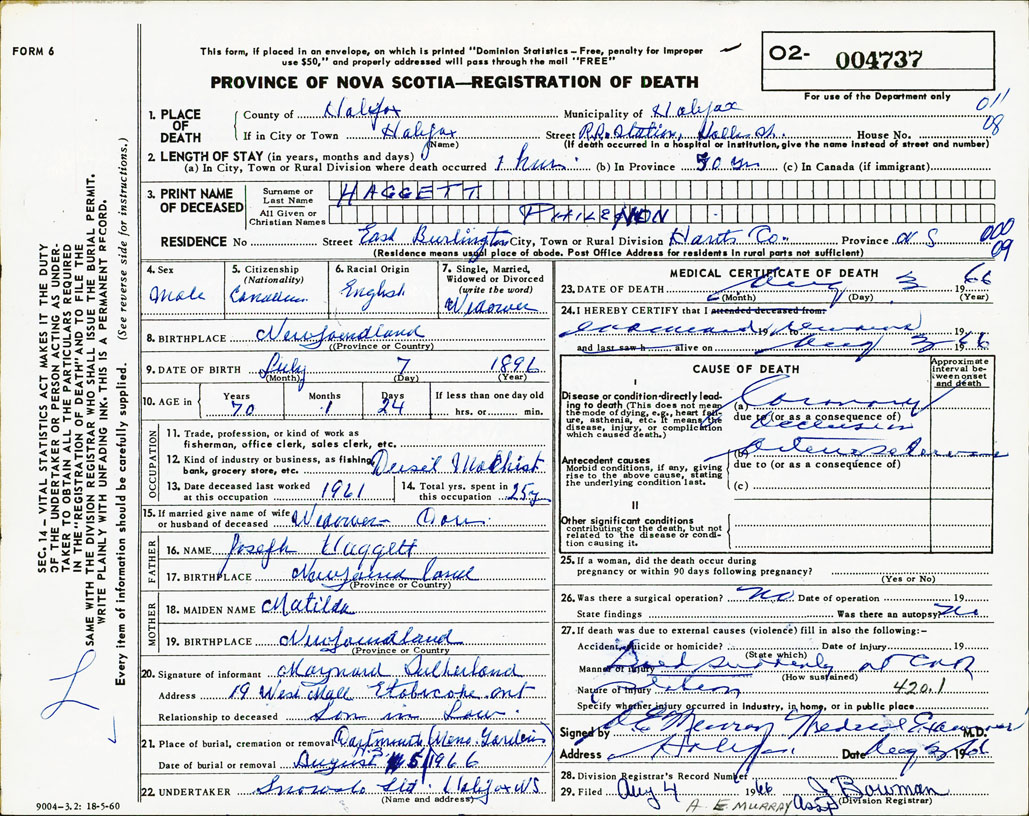 FORM 6
This form, if placed in an envelope, on which is printed "Dominion Statistics – Free, penalty for improper
use $50," and properly addressed will pass through the mail "FREE"
PROVINCE OF NOVA SCOTIA—REGISTRATION OF DEATH
O2- 004737
For use of the Department only
011
08
1. PLACE OF DEATH
County of Halifax Municipality of Halifax
If in City or Town Halifax Street R.R. Station, Hollis St. House No.
(Name) (If death occurred in a hospital or institution, give the name instead of street and number)
2. LENGTH OF STAY (in years, months and days)
(a) In City, Town or Rural Division where death occurred 1 hour (b) In Province 30 yrs (c) In Canada (if immigrant)
3. PRINT NAME OF DECEASED
Surname or Last Name HAGGETT
All Given or Christian Names PHILEMON
RESIDENCE No Street East Burlington City, Town or Rural Division Hants Co. Province N S
000
09
(Residence means usual place of abode. Post Office Address for residents in rural parts not sufficient)
4. Sex
Male
5. Citizenship
(Nationality)
Canadian
6. Racial Origin
English
7. Single, Married,
Widowed or Divorced
(write the word)
Widower
8. BIRTHPLACE Newfoundland
(Province or Country)
9. DATE OF BIRTH July 7 1896
(Month) (Day) (Year)
10. AGE in
Years Months Days If less than one day old
70 1 24 hrs. or min.
OCCUPATION
11. Trade, profession, or kind of work as
fisherman, office clerk, sales clerk, etc.
12. Kind of industry or business, as fishing,
bank, grocery store, etc. Deisel Machist
13. Date deceased last worked
at this occupation 1961
14. Total yrs. spent in
this occupation 25 y
15. If married give name of wife
or husband of deceased Widower
FATHER
16. NAME Joseph Haggett
17. BIRTHPLACE Newfoundland
(Province or Country)
MOTHER
18. MAIDEN NAME Matilda
19. BIRTHPLACE Newfoundland
(Province or Country)
20. Signature of informant Maynard Sutherland
Address 19 West Mall Etobicoke ont
Relationship to deceased Son in Law
21. Place of burial, cremation or removal Dartmouth Mem. Gardens
Date of burial or removal August 5/1966
22. UNDERTAKER Snows Ltd. Halifax NS
(Name and address)
MEDICAL CERTIFICATE OF DEATH
23. DATE OF DEATH Aug 3 66
(Month) (Day) (Year)
24. I HEREBY CERTIFY that I attended deceased from
examined 19 remains 19
and last saw h alive on Aug 3 1966
CAUSE OF DEATH
Approximate interval between onset and death
I
Disease or condition directly leading to death (This does not mean the mode of dying, e.g., heart failure, asthenia, etc. It means the disease, injury, or complication which caused death.)
(a) Coronary
due to (or as a consequence of)
Occlusion
Antecedent causes
Morbid conditions, if any, giving rise to the above cause, stating the underlying condition last.
(b)
due to (or as a consequence of)
(c)
II
Other significant conditions
contributing to the death, but not related to the disease or condition causing it.
25. If a woman, did the death occur during
pregnancy or within 90 days following pregnancy?
(Yes or No)
26. Was there a surgical operation? No Date of operation 19
State findings Was there an autopsy? No
27. If death was due to external causes (violence) fill in also the following:–
Accident, suicide or homicide? Date of injury 19
(State which)
Manner of injury Died suddenly at CNR
(How sustained)
Nature of injury Station 420.1
Specify whether injury occurred in industry, in home, or in public place
Signed by A E Murray Medical Examiner M.D.
Address Halifax Date Aug 3 1966
28. Division Registrar's Record Number
29. Filed Aug 4 1966 J Bowman
A. E MURRAY Asst (Division Registrar)
SEC. 14 – VITAL STATISTICS ACT MAKES IT THE DUTY
OF THE UNDERTAKER OR PERSON ACTING AS UNDER-
TAKER TO OBTAIN ALL THE PARTICULARS REQUIRED
IN THE "REGISTRATION OF DEATH" AND TO FILE THE
SAME WITH THE DIVISION REGISTRAR WHO SHALL ISSUE THE BURIAL PERMIT.
WRITE PLAINLY WITH UNFADING INK. THIS IS A PERMANENT RECORD.
Every item of information should be carefully supplied. (See reverse side for instructions.)
9004-3.2: 18-5-60